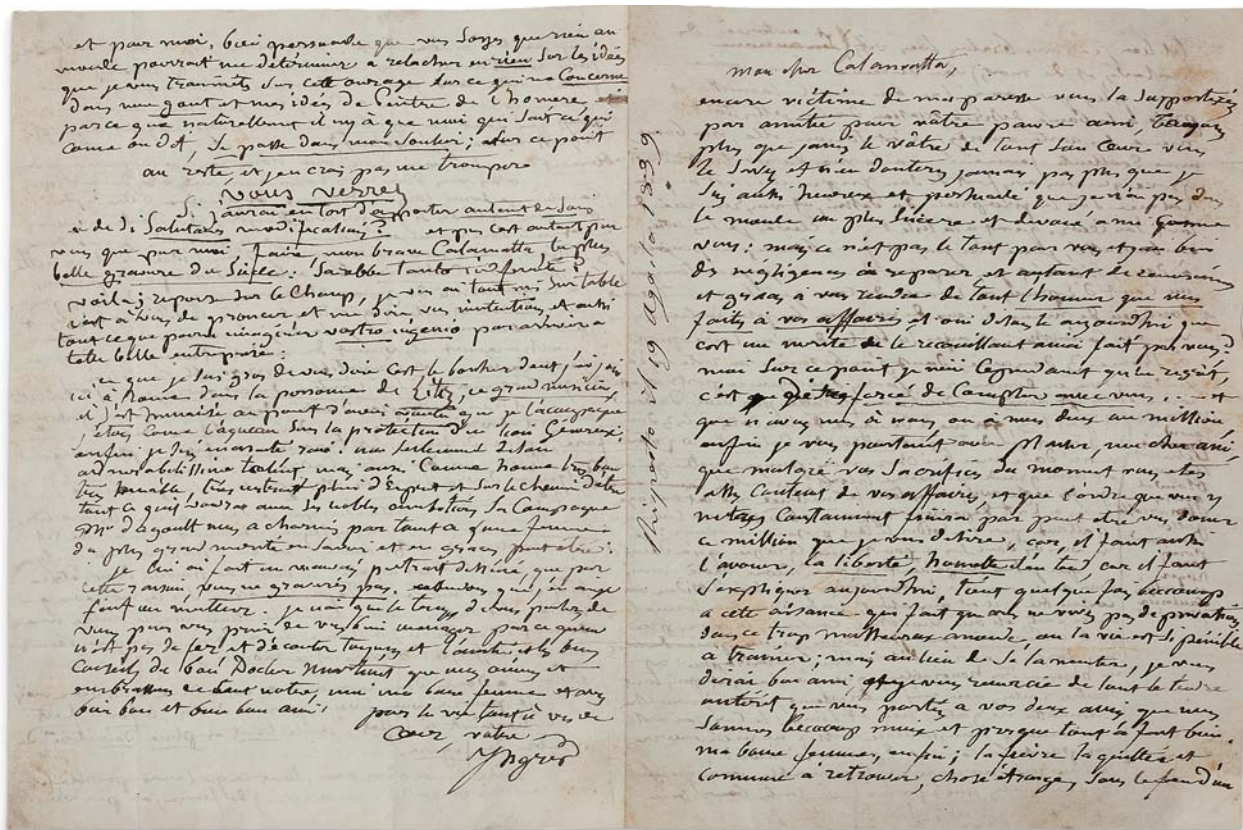 et pour moi, bien persuadé que vous soyez que rien au
monde pourrait me déterminer a relacher en rien sur les idées
que je vous transmets sur cette ouvrage sur ce qui ne Concerne
dans mon gout et mes idées de Peintre de l'homère, et
parce que naturellement il n'y à que moi qui sait ce qui
come on dit, se passe dans mon soulier; sur ce point
au reste, et je ne crois pas me trompere
vous verrez
Si j'aurai eu tort d'apporter autant de soins
e de di Salutaires modifications? et puis c'est autant pour
vous que pour moi, faire, mon brave Calamatta la plus
belle gravure du Siècle: Sarebbe tanto
voila; repons sur le Champ, je vous ai tout mis sur table
c'est a vous de prononcer et me dire, vos intentions, et aussi
tout ce que pourra imaginer vostro ingenio par arriver a
telle belle entreprise:
ce que je suis gros de vous dire c'est le bonheur dont j'ai joui
ici, à Rome dans la personne de Litz, ce grand musicien,
il s'est humanisé au point d'avoir que je l'acompagne
j'etais come l'agneau sous la protection d'un lion Genereux;
enfin je suis encore ravi! non seulement de son
admirabilissime talent mais aussi Comme homme très bon
très aimable, très instruit plein d'Esprit et sur le chemin d'être
tout ce qu'il voudra avec ses nobles ambitions, sa Compagne
Me d'agoult nous a charmés par tout ce qu'une femme
du plus grand merite en savoir et en graces peut etre:
je lui ai fait un mauvais portrait dessiné, que par
cette raison, vous ne graverés pas. attendons que j'en aie
fait un meilleur. je n'ai que le temps de vous parler de
vous pour vous prier de vous bien menager parce qu'on
n'est pas de fer, et d'écouter toujours et l'amitié et les bons
Conseils du bon Docteur Martinet que nous aimons et
embrassons de tout notre, moi ma bone femme et vous
bien bon et bien bon ami! pour la vie tout à vous de
Cœur, votre
Ingres
Risposto il 19 agosto 1839.
mon cher Calamatta,
encore victime de ma paresse vous la supporterez
par amitié pour votre pauvre ami,
plus que jamais le vôtre de tout son Cœur vous
le savez et n'en doutez jamais pas plus que je
suis aussi heureux et persuadé que je n'ai pas dans
le monde un plus sincère et devoué ami Comme
vous: mais ce n'est pas le tout pour vous et j'ai bien
des negligences à reparer et autant de remercimens
et graces à vous rendre de tout l'honneur que vous
faites à vos affaires et oui
c'est un merite de le reconnaitre ainsi fait par vous?
mais sur ce point je n'ai Cependant qu'un regret,
c'est que d'être forcé de Compter avec vous, et
que n'avez vous à vous ou à nous deux un million
enfin je vois pourtant avec plaisir, mon cher ami,
que malgré vos sacrifices du moment vous etes
assez Content de vos affaires, et que l'ordre que vous y
mettez Constament finira par peut etre vous doner
ce million que je vous desire, car, il faut aussi
l'avouer, la liberté, honnette d'entend, car il faut
s'expliquer aujourdhui, tient quelque fois beaucoup
a cete aisance qui fait qu'on ne vive pas de privations
dans ce trop malheureux monde, ou la vie est si penible
a trainer; mais au lieu de se lamenter, je vous
dirai bon ami, que je vous remercie de tout le tendre
interêt que vous portez a vos deux amis que nous
sommes beaucoup mieux et presque tout à fait bien.
ma bonne femme, enfin; la fievre la quittée et
commence à retrouver, chose étrange, sous le feu d'un